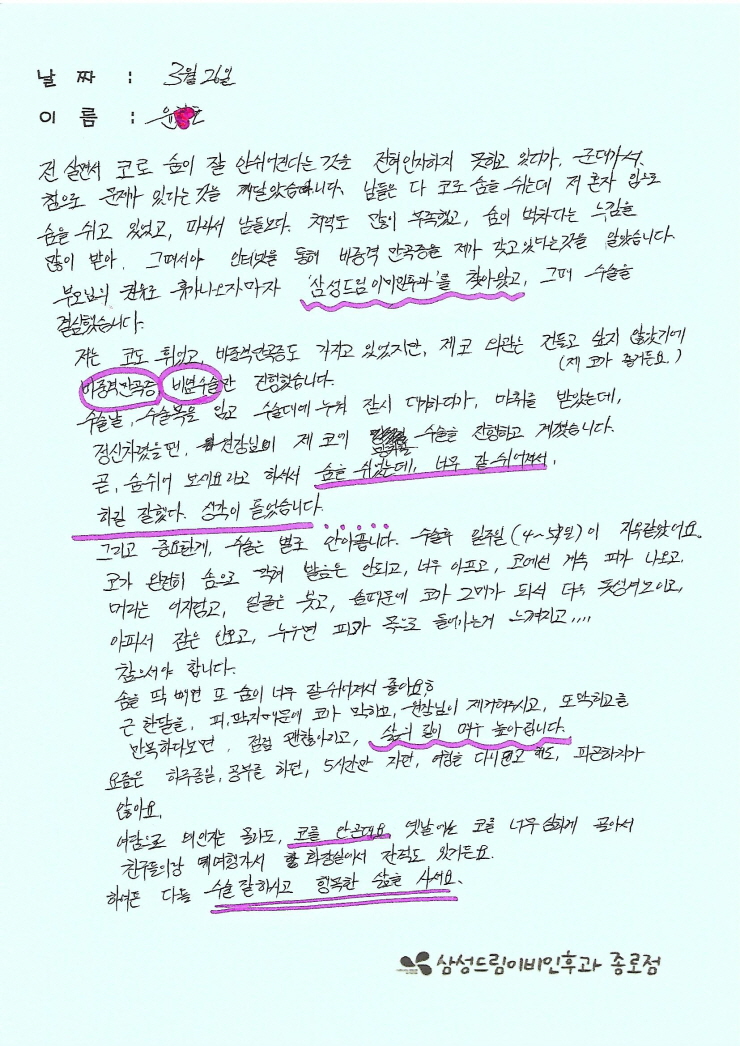 날 짜 : 3월 26일
이 름 : 윤
전 살면서 코로 숨이 잘 안쉬어진다는 것을 전혀인지하지 못하고 있다가, 군대가서,
참으로 문제가 있다는것을 깨달았습니다. 남들은 다 코로 숨을 쉬는데 저 혼자 입으로
숨을 쉬고 있었고, 따라서 남들보다. 체력도 많이 부족했고, 숨이 벅차다는 느낌을
많이 받아. 그때서야 인터넷을 통해 비중격 만곡증을 제가 갖고있다는것을 알았습니다.
부모님의 권유로 휴가나오자마자 '삼성드림이비인후과'를 찾아왔고, 그때 수술을
결심했습니다.
저는 코도 휘었고, 비중격만곡증도 가지고 있었지만, 제 코 외관은 건들고 싶지 않았기에
(제 코가 좋거든요.)
비중격만곡증, 비염수술만 진행했습니다.
수술날, 수술복을 입고 수술대에 누워 잠시 대기하다가, 마취를 받았는데,
정신차렸을땐, 원장님이 제 코에 수술을 진행하고 계셨습니다.
곧, 숨쉬어 보세요라고 하셔서 숨을 쉬었는데, 너무 잘 쉬어져서,
하길 잘했다. 생각이 들었습니다.
그리고 중요한게, 수술은 별로 안아픕니다. 수술후 일주일 (4~5일)이 지옥같았어요.
코가 완전히 솜으로 막혀 발음은 안되고, 너무 아프고, 코에선 계속 피가 나오고.
머리는 어지럽고, 얼굴은 붓고, 솜때문에 코가 그매가 파서 다소 못생겨보이고,
아파서 잠은 안오고, 누우면 피가 목으로 들어가는게 느껴지고,,,,
참으셔야 합니다.
솜을 딱 빼면 또 숨이 너무 잘 쉬어져서 좋아요!
근 한달을, 피,딱지때문에 코가 막히고, 원장님이 제거해주시고, 또막히고를
반복하다보면, 점점 괜찮아지고, 삶의 질이 매우 높아집니다.
요즘은 하루종일, 공부를 하던, 5시간만 자던, 여행을 다시면오 해도, 피곤하지가
않아요.
여담으로 왜인지는 몰라도, 코를 안곤대요 옛날에는 코를 너무 심하게 골아서
친구들이랑 여행가서 화장실에서 잔적도 있거든요.
하여튼 다들 수술 잘하시고 행복한 삶을 사세요.
삼성드림이비인후과 종로점